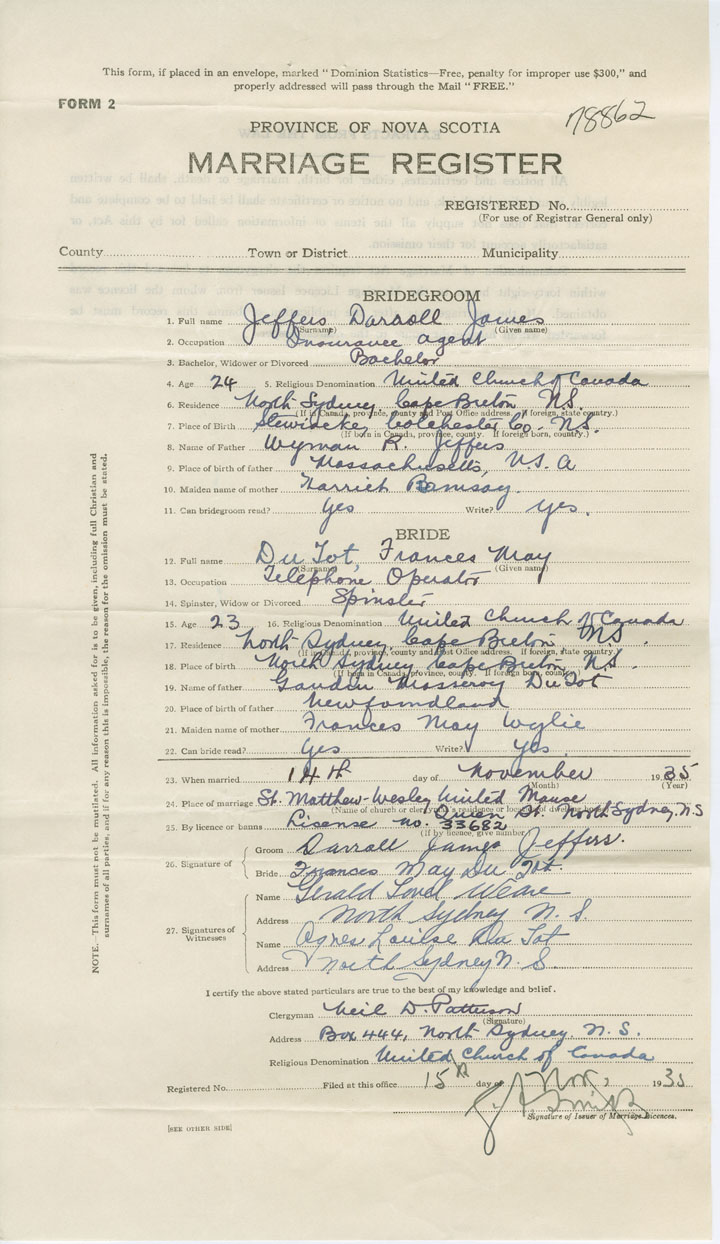 This form, if placed in an envelope, marked "Dominion Statistics—Free, penalty for improper use $300," and
properly addressed will pass through the Mail "FREE."
FORM 2
78862
PROVINCE OF NOVA SCOTIA
MARRIAGE REGISTER
REGISTERED No.
(For use of Registrar General only)
County Town or District Municipality
BRIDEGROOM
1. Full name Jeffers Darroll James
(Surname) (Given name)
2. Occupation Insurance agent
3. Bachelor, Widower or Divorced Bachelor
4. Age 24 5. Religious Denomination United Church of Canada
6. Residence North Sydney Cape Breton N.S.
(If in Canada, province, county and Post Office address. If foreign, state country.)
7. Place of Birth Stewiacke, Colchester Co. N.S.
(If born in Canada, province, county. If foreign born, country.)
8. Name of Father Wyman R. Jeffers
9. Place of father Massachusetts, U.S.A
10. Maiden name of mother Harriet Ramsay.
11. Can bridegroom read? Yes Write? Yes.
BRIDE
12. Full name Du Tot, Frances May
(Surname) (Given name)
13. Occupation Telephone Operator
14. Spinster, Widow or Divorced Spinster
15. Age 23 16. Religious Denomination United Church of Canada
17. Residence North Sydney, Cape Breton N.S.
(If in Canada, province, county and Post Office address. If foreign, state country.)
18. Place of birth North Sydney Cape Breton N.S.
(If born in Canada, province, county. If foreign born, country.)
19. Name of father Du Tot
20. Place of birth of father Newfoundland
21. Maiden name of mother Frances May Wylie
22. Can bride read? Yes Write? Yes
23. When married 14th day of November 1935
(Month) (Year)
24. Place of marriage St. Matthew-Wesley United Manse
(Name of church or clergyman's residence or location of dwelling house)
Queen St. North Sydney. N.S
25. By licence or banns License no. 33682
(If by licence, give number)
26. Signature of Groom Darroll James Jeffers.
Bride Frances May Du Tot.
27. Signatures of Witnesses Name Gerald Lovel Weare
Address North Sydney N. S.
Name Agnes Louise Du Tot
Address North Sydney N. S.
I certify the above stated particulars are true to the best of my knowledge and belief.
Clergyman Neil D. Patterson
(Signature)
Address Box 444, North Sydney, N. S.
Religious Denomination United Church of Canada
Registered No. Filed at this office 15th day of Nov, 1935
Signature of Issuer of Marriage Licences.
[SEE OTHER SIDE]
NOTE.—This form must not be mutilated. All information asked for is to be given, including full Christian and
surnames of all parties, and if for any reason this is impossible, the reason for the omission must be stated.